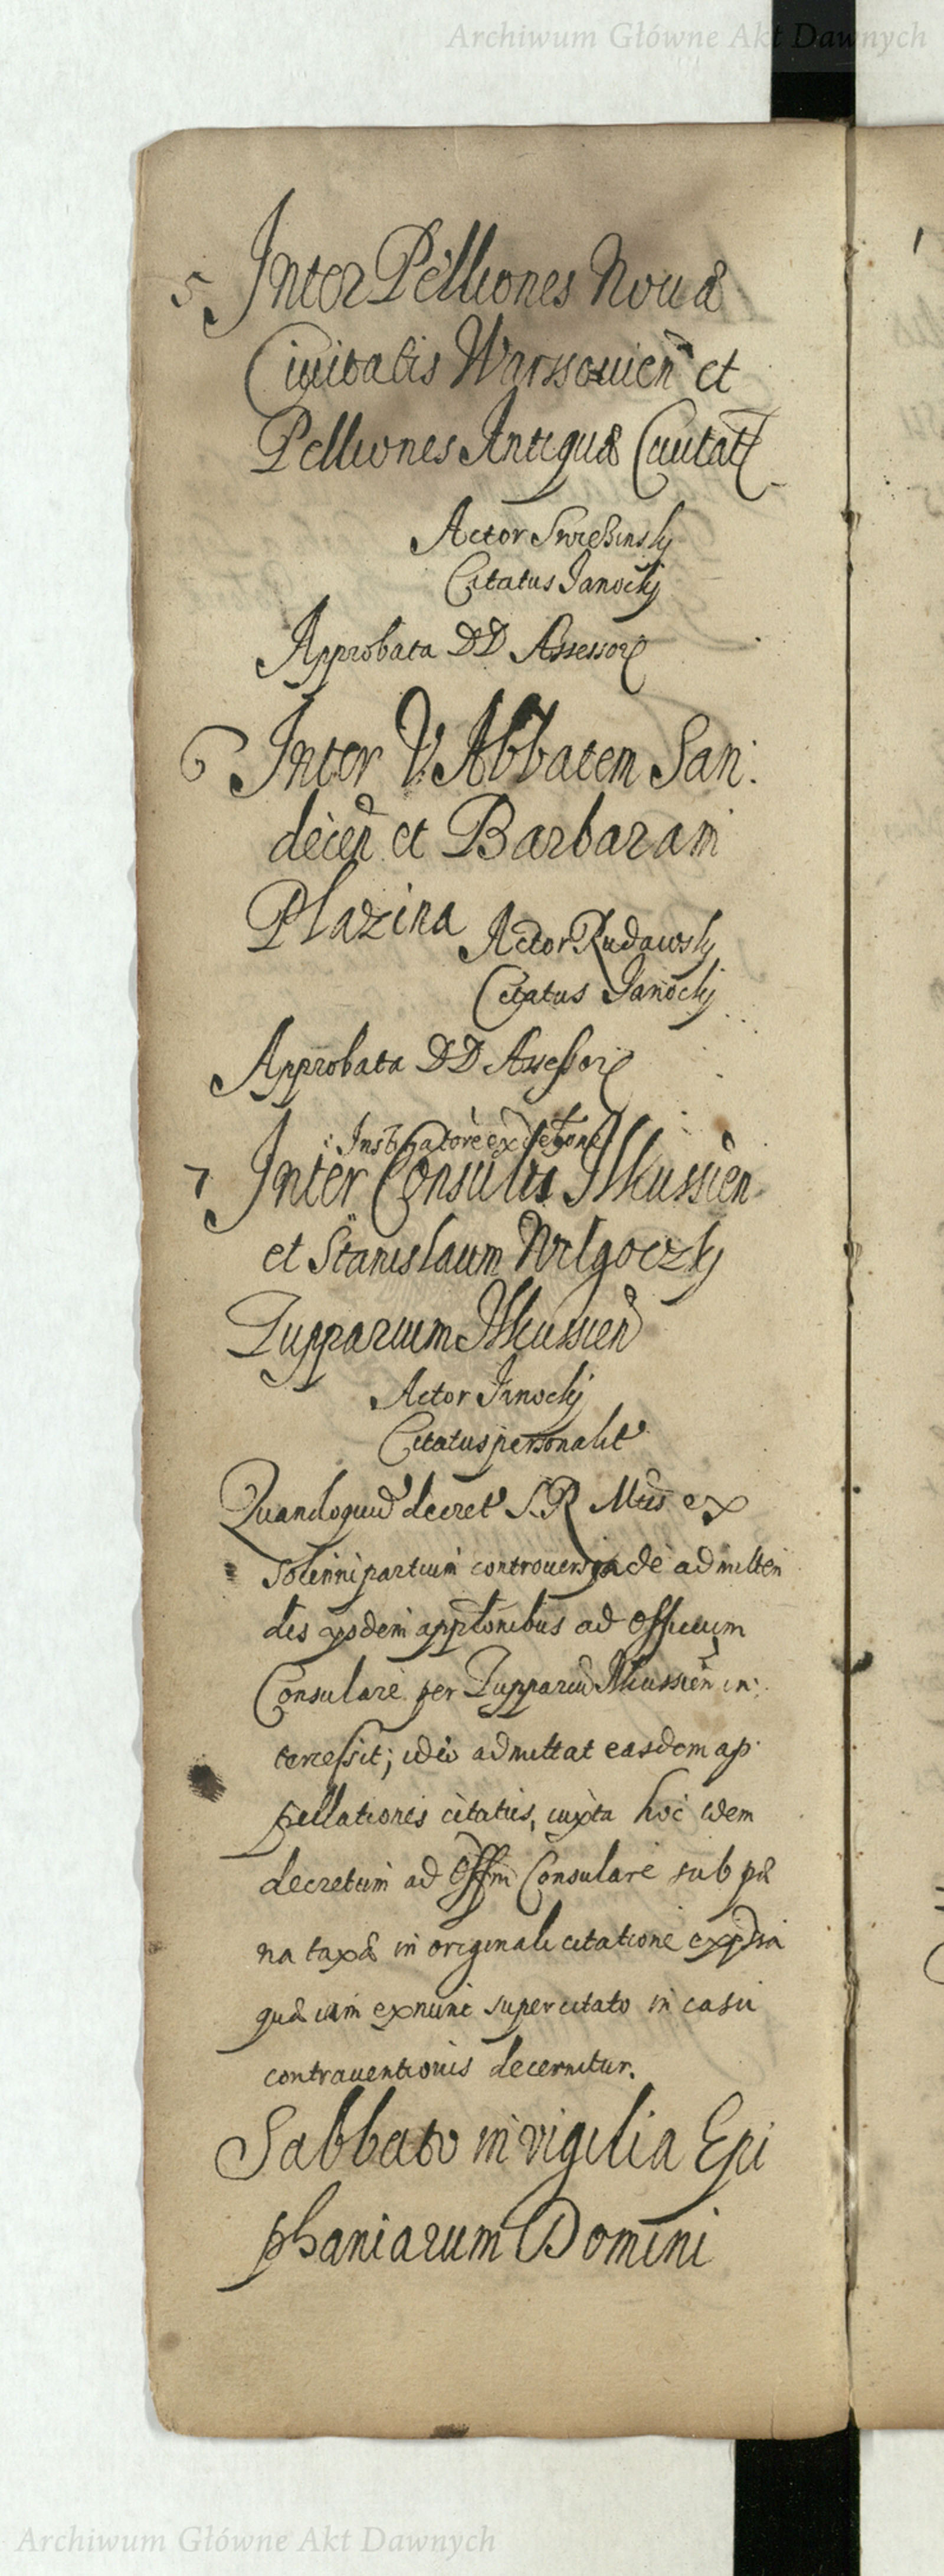 Archiwum Główne Akt Dawnych
5 Inter Pelliones Nouæ
Ciuitatis Warssouien et
Pelliones Antiquæ Ciuitat
Actor Swiesinsky
Citatus Janocky
Approbata DD Assessor
6 Inter V. Abbatem San:
decen et Barbaram
Plazina Actor Rudawsky
Citatus Janocky
Approbata DD Assessor
: Instigatore ex
7 Inter Consules Ilkussien
et Stanislaum Wilgoczky
Zupparium Ilkussien
Actor Janocky
Citatus personalit
Quandoquid decret S. R. Mtis ex
solenni partium controuersia de admitten
dis eisdem appltonibus ad Officium
Consulare per Zupparium Ilkussien in:
tercessit; ideo admittat easdem ap:
pellationes citatus, iuxta hoc idem
decretum ad Offm Consulare sub pæ
na taxæ in originali citatione expssa
quæ iam exnunc super citato in casu
contrauentionis decernitur.
Sabbato in vigilia Epi
phaniarum Domini
Archiwum Główne Akt Dawnych